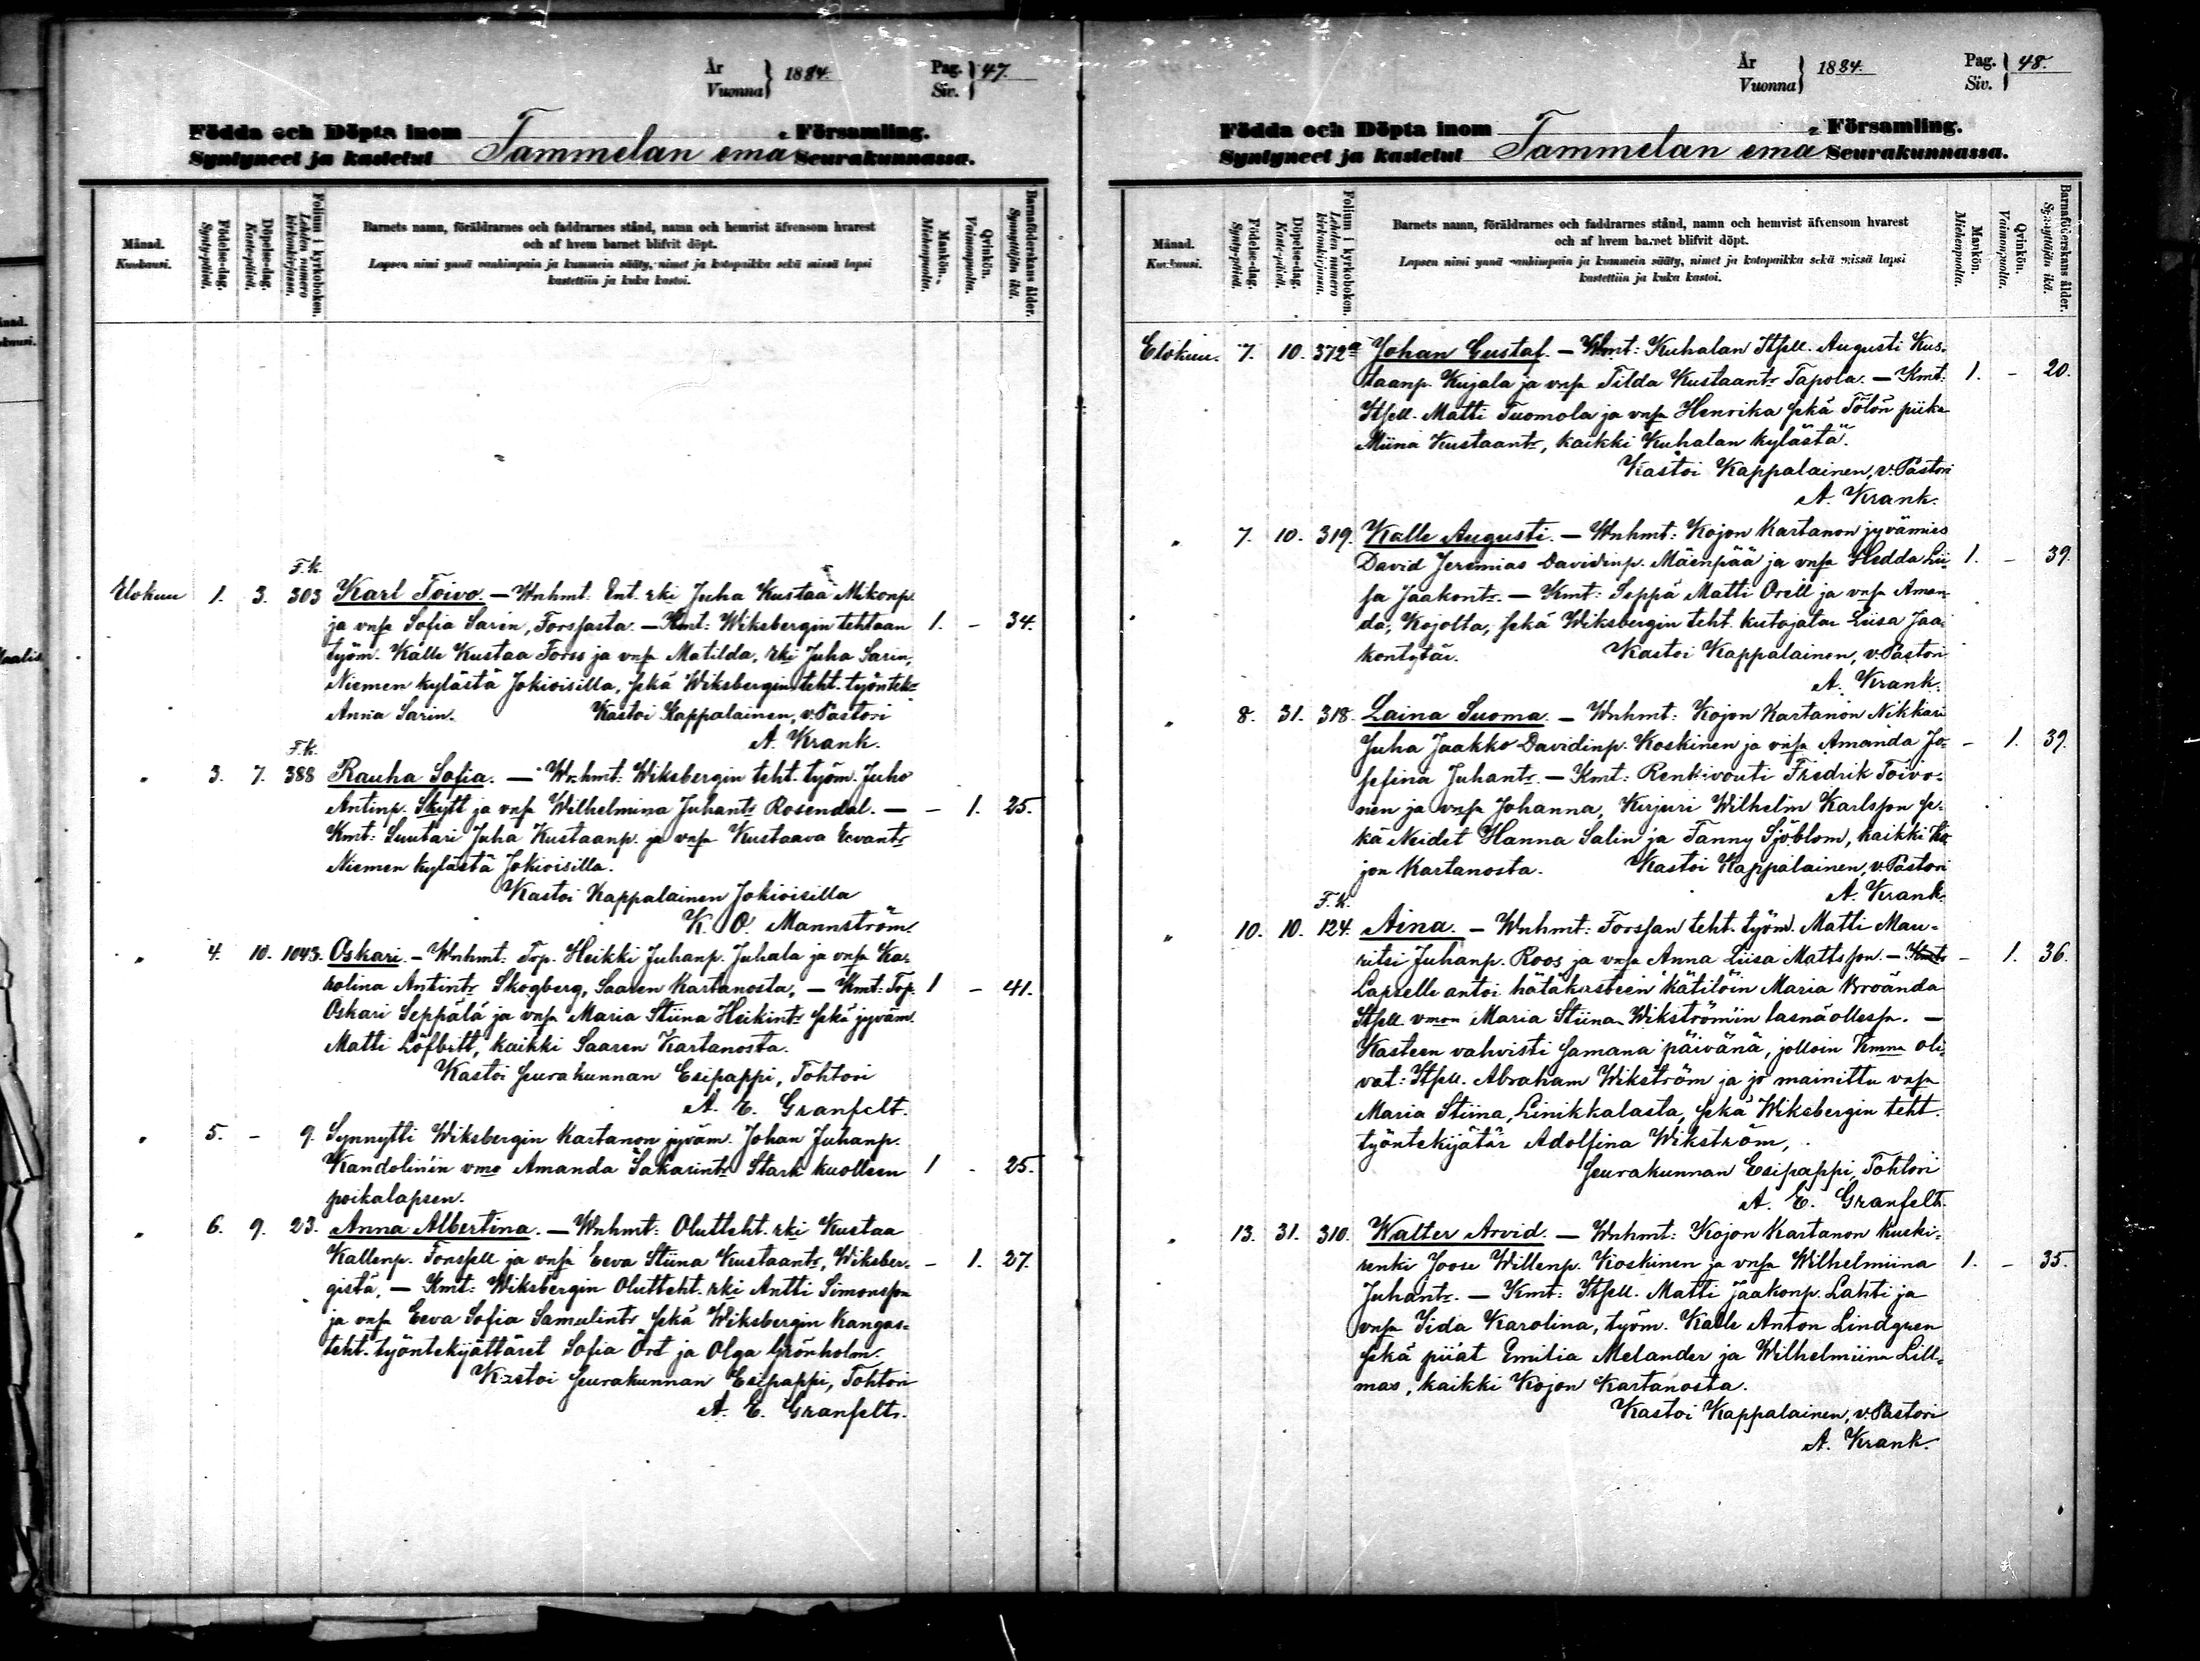 År
Vuonna } 1884.
Pag.
Siv. } 47.
Födda och Döpta inom Församling.
Syntyneet ja kastetut Tammelan emä Seurakunnassa.
Månad.
Kuukausi.
Födelse-dag.
Synty-päivä.
Döpelse-dag.
Kaste-päivä.
Folium i kyrkoboken.
Lehden numero kirkonkirjassa.
Barnets namn, föräldrarnes och faddrarnes stånd, namn och hemvist äfvensom hvarest
och af hvem barnet blifvit döpt.
Lapsen nimi ynnä vanhimpain ja kummein sääty, nimet ja kotopaikka sekä missä lapsi
kastettiin ja kuka kastoi.
Mankön.
Miehenpuolia.
Qvinkön.
Vaimonpuolia.
Barnaföderskans ålder.
Synnyttäjän ikä.
F.k.
Elokuu 1. 3. 303 Karl Toivo. — Wnhmt: Ent. rki Juha Kustaa Mikonp.
ja vnsa Sofia Sarin, Forssasta. — Kmt: Wiksbergin tehtaan 1. - 34.
työm. Kalle Kustaa Forss ja vnsa Matilda, rki Juha Sarin,
Niemen kylästä Jokioisilla, sekä Wiksbergin teht. työntek-
Anna Sarin. Kastoi Kappalainen, v. Pastori
A. Krank.
F.k.
" 3. 7. 388 Rauha Sofia. — Wnhmt: Wiksbergin teht. työm. Juho
Antinp. Skytt ja vnsa Wilhelmina Juhantr Rosendal. — - 1. 25.
Kmt: Suutari Juha Kustaanp. ja vnsa Kustaava Eevantr
Niemen kylästä Jokioisilla.
Kastoi Kappalainen Jokioisilla
K. O. Mannström.
" 4. 10. 1043. Oskari. — Wnhmt: Trp. Heikki Juhanp. Juhala ja vnsa Ka-
rolina Antintr Skogberg, Saaren Kartanosta. — Kmt: Trp. 1 - 41.
Oskari Seppälä ja vnsa Maria Stiina Heikintr sekä jyväm.
Matti Löfbitt, kaikki Saaren Kartanosta.
Kastoi seurakunnan Esipappi, Tohtori
A. E. Granfelt.
" 5. - 9. Synnytti Wiksbergin Kartanon jyväm. Johan Juhanp.
Kandolin'in vmo Amanda Sakarintr Stark kuolleen 1 - 25.
poikalapsen.
" 6. 9. 23. Anna Albertina. — Wnhmt: Olutteht. rki Kustaa
Kallenp. Forssell ja vnsa Eeva Stiina Kustaantr, Wiksber- - 1. 27.
gistä. — Kmt: Wiksbergin Olutteht. rki Antti Simonsson
ja vnsa Eeva Sofia Samulintr sekä Wiksbergin kangas-
teht. työntekijättäret Sofia Öst ja Olga Grönholm.
Kastoi seurakunnan Esipappi, Tohtori
A. E. Granfelt.
År
Vuonna } 1884.
Pag.
Siv. } 48.
Födda och Döpta inom Församling.
Syntyneet ja kastetut Tammelan emä Seurakunnassa.
Månad.
Kuukausi.
Födelse-dag.
Synty-päivä.
Döpelse-dag.
Kaste-päivä.
Folium i kyrkoboken.
Lehden numero kirkonkirjassa.
Barnets namn, föräldrarnes och faddrarnes stånd, namn och hemvist äfvensom hvarest
och af hvem barnet blifvit döpt.
Lapsen nimi ynnä vanhimpain ja kummein sääty, nimet ja kotopaikka sekä missä lapsi
kastettiin ja kuka kastoi.
Mankön.
Miehenpuolia.
Qvinkön.
Vaimonpuolia.
Barnaföderskans ålder.
Synnyttäjän ikä.
Elokuu. 7. 10. 372a Johan Gustaf. — Wnmt: Kuhalan Itsell. Augusti Kus-
taanp. Kujala ja vnsa Tilda Kustaantr Tapola. — Kmt: 1. - 20.
Itsell. Matti Tuomola ja vnsa Henrika sekä Tölön piika
Miina Kustaantr, kaikki Kuhalan kylästä.
Kastoi Kappalainen, v. Pastori
A. Krank.
" 7. 10. 319. Kalle Augusti. — Wnhmt: Kojon Kartanon jyvämies
David Jeremias Davidinp. Mäenpää ja vnsa Hedda Lii- 1. - 39.
sa Jaakontr. — Kmt: Seppä Matti Orell ja vnsa Aman-
da, Kojolta, sekä Wiksbergin teht. kutojatar Liisa Jaa-
kontytär. Kastoi Kappalainen, v. Pastori
A. Krank.
" 8. 31. 318. Laina Suoma. — Wnhmt: Kojon Kartanon Nikkari
Juha Jaakko Davidinp. Koskinen ja vnsa Amanda Jo- - 1. 39.
sefina Juhantr. — Kmt: Renkivouti Fredrik Toivo-
nen ja vnsa Johanna, Kirjuri Wilhelm Karlsson se-
kä Neidet Hanna Salin ja Fanny Sjöblom, kaikki Ko-
jon Kartanosta. Kastoi Kappalainen, v. Pastori
A. Krank.
F.K.
" 10. 10. 124. Aina. — Wnhmt: Forssan teht. työm. Matti Mau-
ritsi Juhanp. Roos ja vnsa Anna Liisa Mattsson. — Kmt - 1. 36.
Lapselle antoi hätäkasteen kätilöin Maria Broända
Itsell. vmon Maria Stiina Wikström'in läsnäollessa. —
Kasteen vahvisti samana päivänä, jolloin Kmna oli-
vat: Itsell. Abraham Wikström ja jo mainittu vnsa
Maria Stiina, Linikkalasta, sekä Wiksbergin teht.
työntekijätär Adolfina Wikström,
seurakunnan Esipappi, Tohtori
A. E. Granfelt.
" 13. 31. 310. Walter Arvid. — Wnhmt: Kojon Kartanon Kuski-
renki Joose Willenp. Koskinen ja vnsa Wilhelmiina 1. - 35.
Juhantr. — Kmt: Itsell. Matti Jaakonp. Lahti ja
vnsa Iida Karolina, työm. Kalle Anton Lindgren
sekä piiat Emilia Melander ja Wilhelmiina Lill-
mas, kaikki Kojon Kartanosta.
Kastoi Kappalainen, v. Pastori
A. Krank.